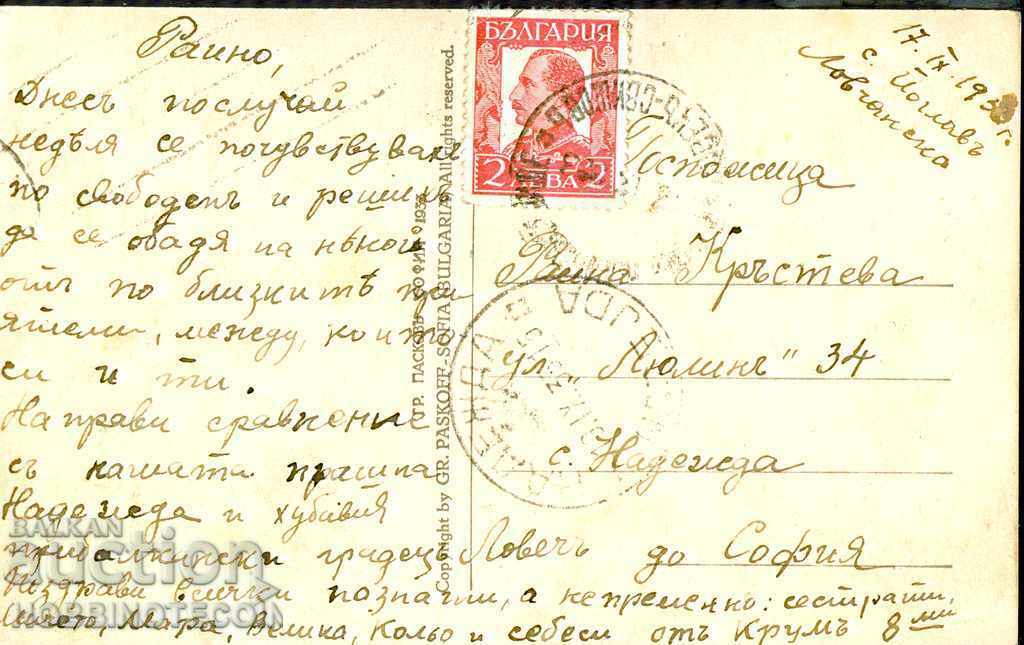 Раино,
Днесъ послучай
недѣля се почувствувахъ
по свободенъ и решихъ
да се обадя на нѣкои
отъ по близкитѣ при
ятели, между които
си и ти.
Направи сравнение
съ нашата прашна
Надежда и хубавия
прибалкански градецъ Ловечъ
Поздрави всички познати, а непременно: сестрати,
Мара, Велика, Кольо и себеси отъ Крумъ 8ми
ГР. ПАСКОВЪ СОФИЯ
Copyright by GR. PASKOFF-SOFIA (BULGARIA) All rights reserved.
БЪЛГАРИЯ
2 ЛЕВА 2
17.IX.193 г.
с. Йоглавъ
Ловчанско
Госпожица
Раина Кръстева
ул. „Люлинъ" 34
с. Надежда
до София
BALKAN
auction
НОВІNOTE.COM